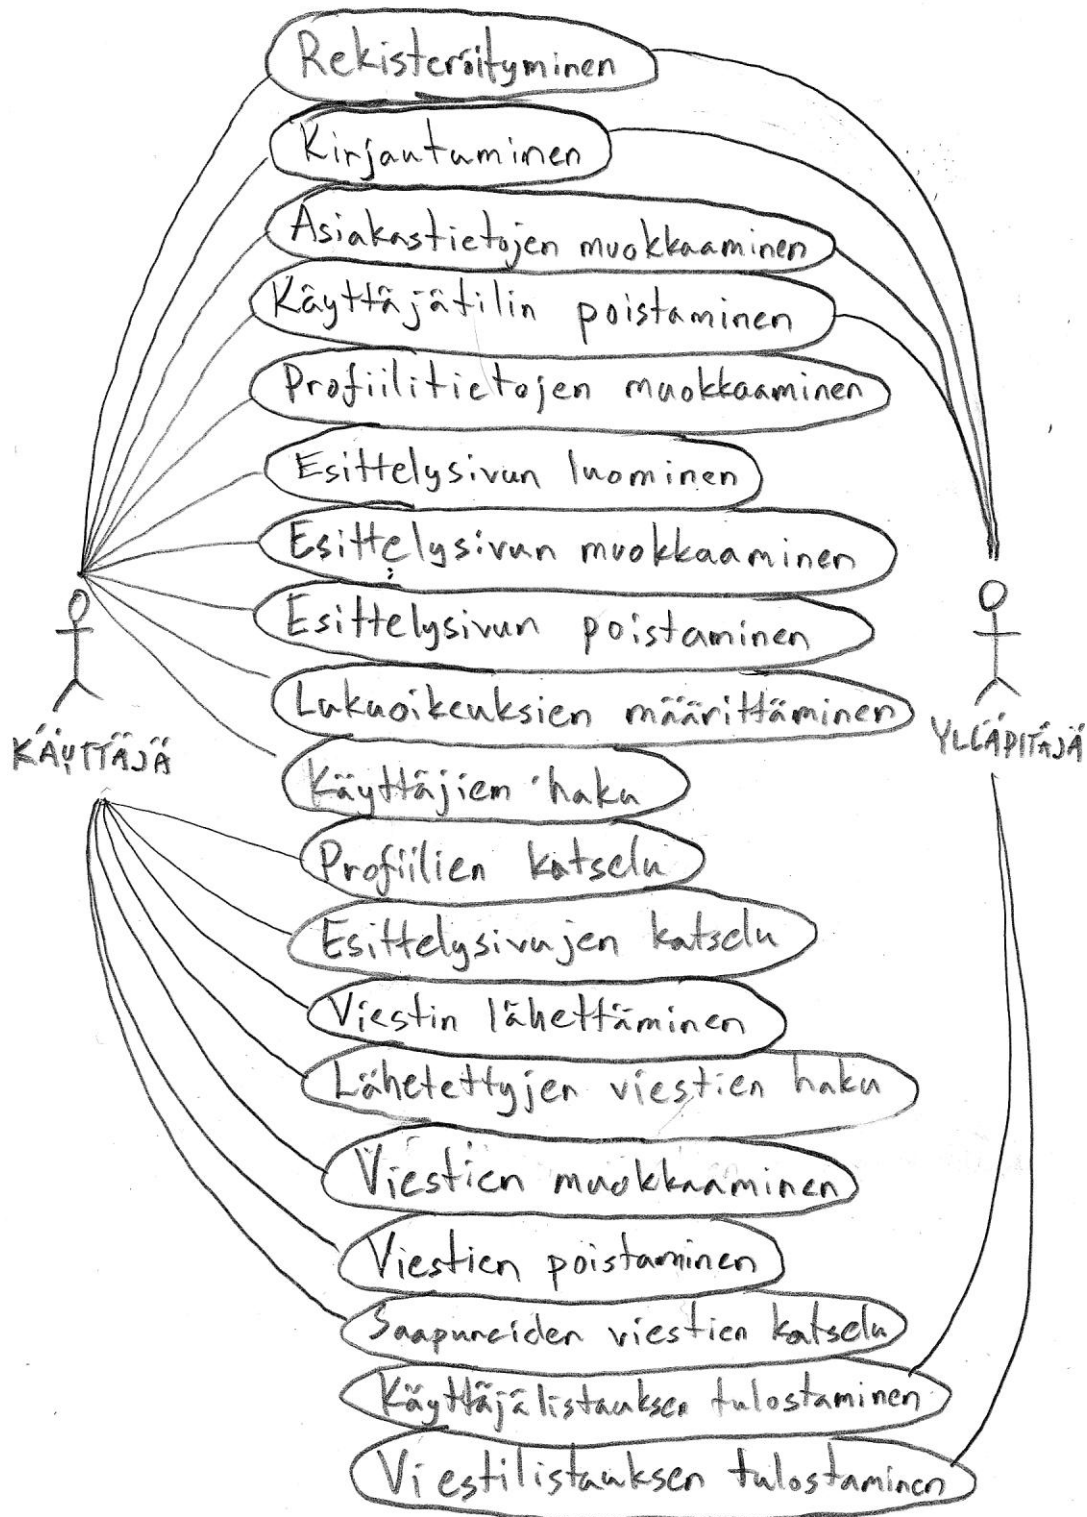 Rekisteröityminen
Kirjautuminen
Asiakastietojen muokkaaminen
Käyttäjätilin poistaminen
Profiilitietojen muokkaaminen
Esittelysivun luominen
Esittelysivun muokkaaminen
Esittelysivun poistaminen
Lukuoikeuksien määrittäminen
KÄYTTÄJÄ
YLLÄPITÄJÄ
Käyttäjiem haku
Profiilien katselu
Esittelysivujen katselu
Viestin lähettäminen
Lähetettyjen viestien haku
Viestien muokkaaminen
Viestien poistaminen
Saapuneiden viestien katselu
Käyttäjälistauksen tulostaminen
Viestilistauksen tulostaminen